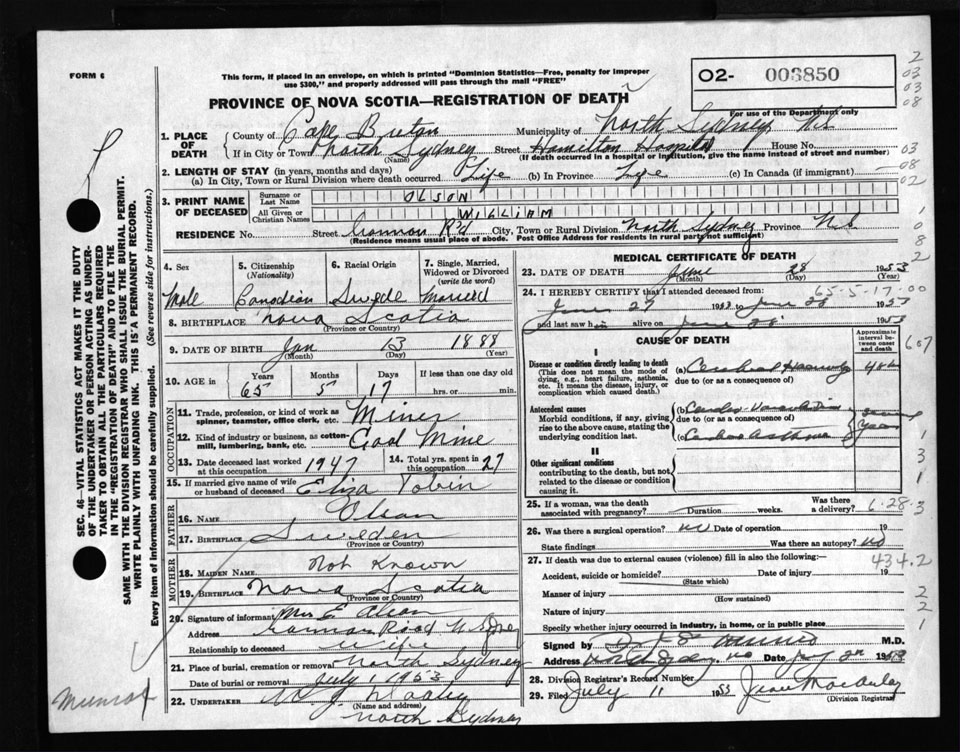 FORM 6
This form, if placed in an envelope, on which is printed "Dominion Statistics—Free, penalty for improper
use $300," and properly addressed will pass through the mail "FREE"
O2- 003850
For use of the Department only
PROVINCE OF NOVA SCOTIA—REGISTRATION OF DEATH
1. PLACE OF DEATH
County of Cape Breton Municipality of North Sydney NS
If in City or Town North Sydney Street Hamilton Hospital House No.
(Name) (If death occurred in a hospital or institution, give the name instead of street and number)
2. LENGTH OF STAY (in years, months and days)
(a) In City, Town or Rural Division where death occurred Life (b) In Province Life (c) In Canada (if immigrant)
3. PRINT NAME OF DECEASED
Surname or Last Name OLSON
All Given or Christian Names WILLIAM
RESIDENCE No. Street R'd City, Town or Rural Division North Sydney Province N.S
(Residence means usual place of abode. Post Office Address for residents in rural parts not sufficient)
4. Sex Male
5. Citizenship (Nationality) Canadian
6. Racial Origin Swede
7. Single, Married, Widowed or Divorced (write the word) Married
8. BIRTHPLACE Nova Scotia
(Province or Country)
9. DATE OF BIRTH Jan 13 1888
(Month) (Day) (Year)
10. AGE in Years 65 Months 5 Days 17 If less than one day old hrs. or min.
OCCUPATION
11. Trade, profession, or kind of work as spinner, teamster, office clerk, etc. Miner
12. Kind of industry or business, as cotton-mill, lumbering, bank, etc. Coal Mine
13. Date deceased last worked at this occupation 1947
14. Total yrs. spent in this occupation 27
15. If married give name of wife or husband of deceased Eliza Tobin
FATHER
16. NAME Olson
17. BIRTHPLACE Sweden
(Province or Country)
MOTHER
18. MAIDEN NAME Not Known
19. BIRTHPLACE Nova Scotia
(Province or Country)
20. Signature of informant Mrs E Olson
Address Road N Sydney
Relationship to deceased wife
21. Place of burial, cremation or removal North Sydney
Date of burial or removal July 1, 1953
22. UNDERTAKER W J Dooley
(Name and address)
North Sydney
MEDICAL CERTIFICATE OF DEATH
23. DATE OF DEATH June 28 1953
(Month) (Day) (Year)
65-5-17-00
24. I HEREBY CERTIFY that I attended deceased from:
June 27 1953 to June 28 1953
and last saw him alive on June 28 1953
CAUSE OF DEATH
Approximate interval between onset and death
I
Disease or condition directly leading to death
(This does not mean the mode of dying, e.g., heart failure, asthenia, etc. It means the disease, injury, or complication which caused death.)
(a) Cerebral
due to (or as a consequence of)
Antecedent causes
Morbid conditions, if any, giving rise to the above cause, stating the underlying condition last.
(b)
due to (or as a consequence of)
(c)
II
Other significant conditions
contributing to the death, but not related to the disease or condition causing it.
25. If a woman, was the death associated with pregnancy? Duration weeks. Was there a delivery?
6-28-3
26. Was there a surgical operation? no Date of operation 19
State findings Was there an autopsy? no
27. If death was due to external causes (violence) fill in also the following:—
434.2
Accident, suicide or homicide? Date of injury 19
(State which)
Manner of injury
(How sustained)
Nature of injury
Specify whether injury occurred in industry, in home, or in public place
Signed by M.D.
Address Date
28. Division Registrar's Record Number
29. Filed July 11 1953
(Division Registrar)
SEC. 46—VITAL STATISTICS ACT MAKES IT THE DUTY
OF THE UNDERTAKER OR PERSON ACTING AS UNDER-
TAKER TO OBTAIN ALL THE PARTICULARS REQUIRED
IN THE "REGISTRATION OF DEATH" AND TO FILE THE
SAME WITH THE DIVISION REGISTRAR WHO SHALL ISSUE THE BURIAL PERMIT.
WRITE PLAINLY WITH UNFADING INK. THIS IS A PERMANENT RECORD.
Every item of information should be carefully supplied. (See reverse side for instructions.)
2
03
03
08
03
08
02
1
0
8
2
607
1
3
1
3
2
2
1